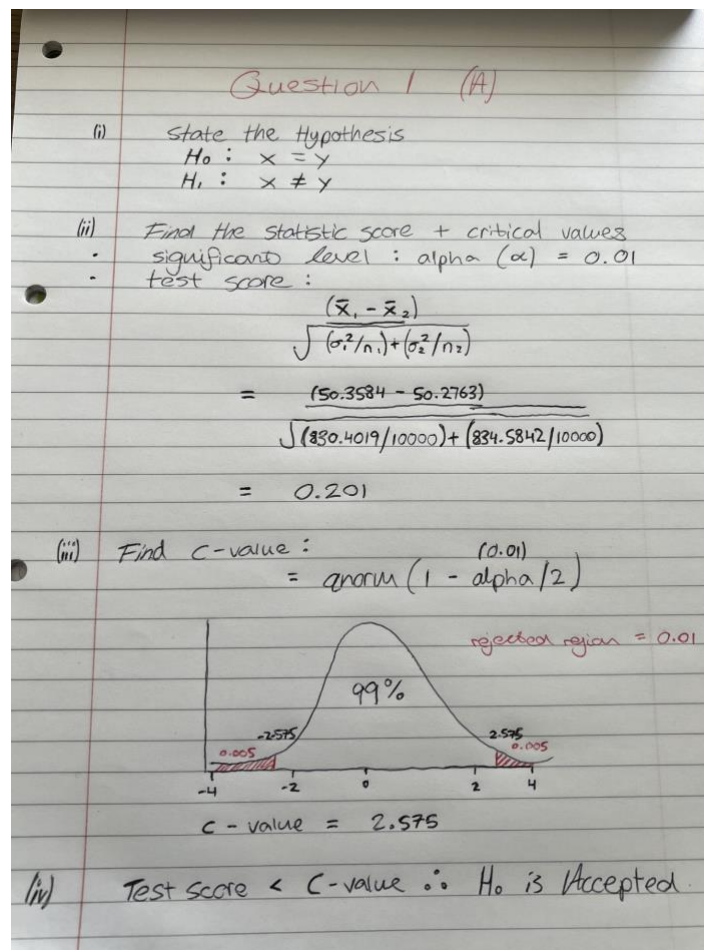 Question 1 (A)
(i) State the Hypothesis
H₀ : x = y
H₁ : x ≠ y
(ii) Find the statistic score + critical values
· significants level : alpha (α) = 0.01
· test score :
(x̄₁ - x̄₂)
√(σ₁²/n₁)+(σ₂²/n₂)
= (50.3584 - 50.2763)
√(830.4019/10000)+(834.5842/10000)
= 0.201
(iii) Find c-value :
(0.01)
= qnorm (1 - alpha/2)
rejected region = 0.01
99%
-2.575 2.575
0.005 0.005
-4 -2 0 2 4
c - value = 2.575
(iv) Test score < C-value ∴ H₀ is Accepted.